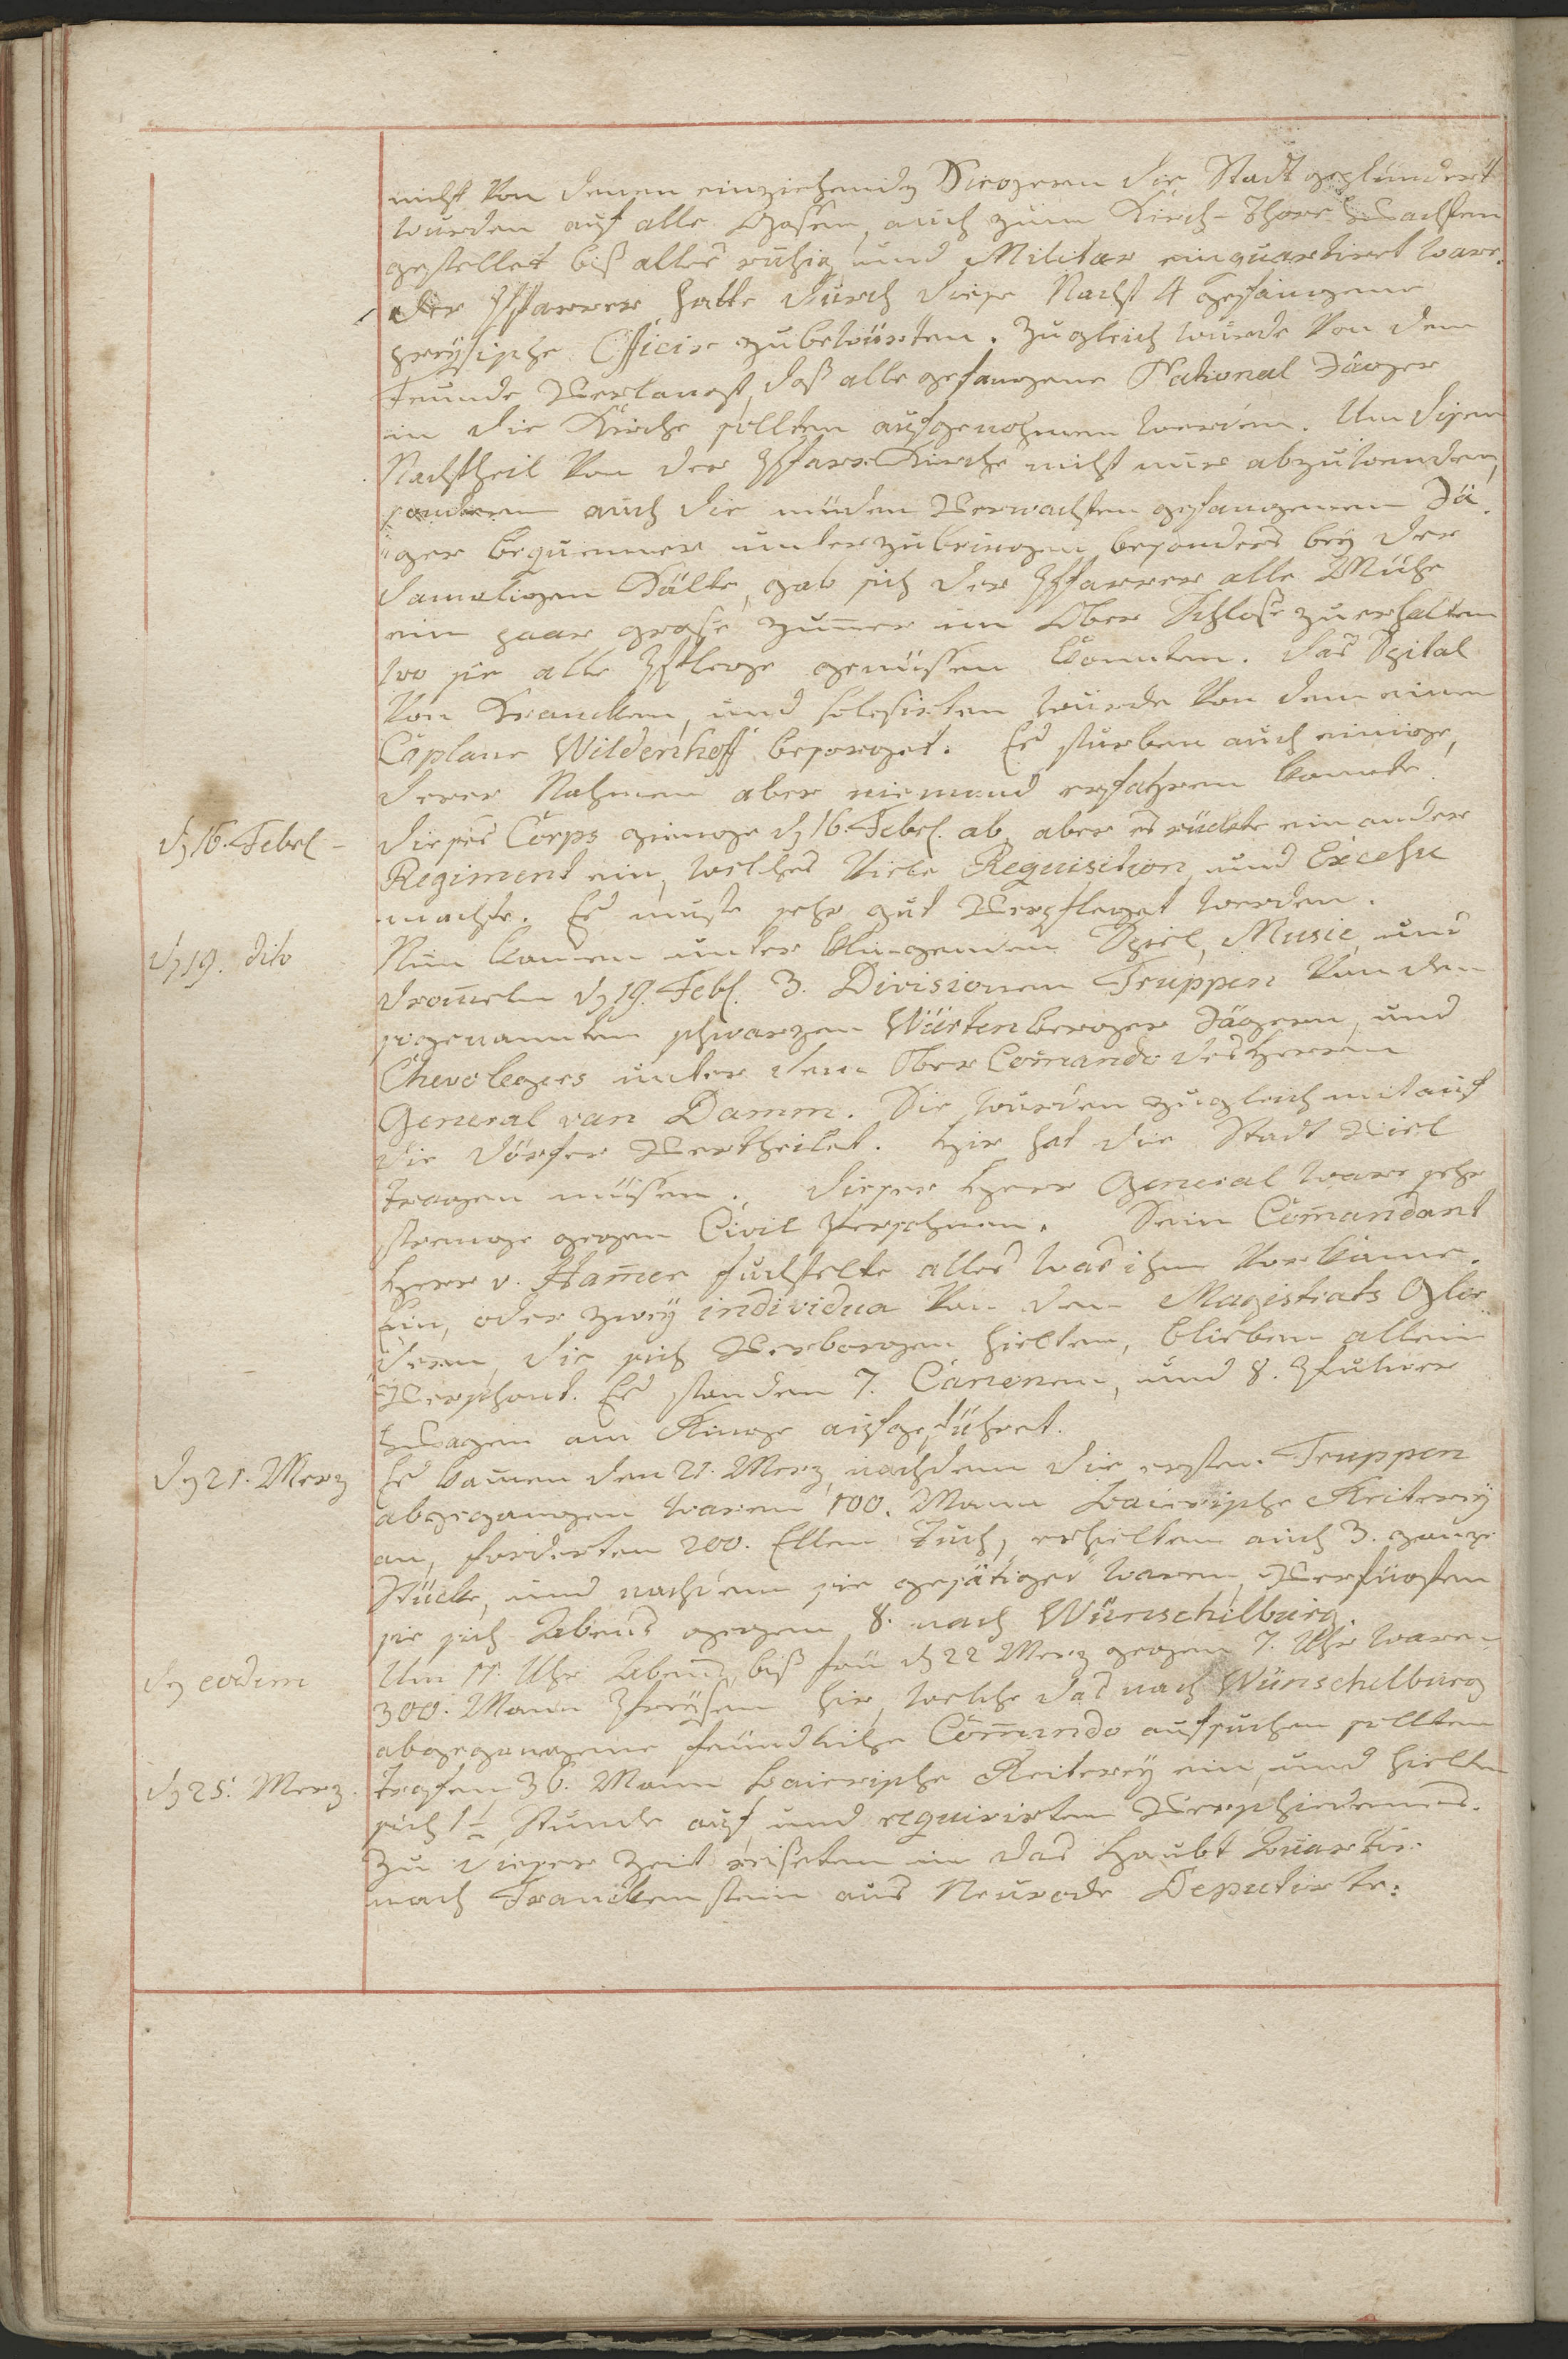 nicht von denen einziehenden Siegern die Stadt geplündert
wurden auf alle Gaßen, auch zum Kirch-Thore Wachten
gestellet biß alles ruhig und Militär einquartiret ware.
Der Pfarrer hatte durch diese Nacht 4 gefangene
preüsische Officire zu bewürten. Zugleich wurde von dem
Feinde verlangt, daß alle gefangene National Jäger
in die Kirche sollten aufgenohmen werden. Um disen
Nachtheil von der Pfarr Kirche nicht nur abzuwenden,
sondern auch die müden verwachten gefangenen Jä-
ger bequemmer unterzubringen besonders beÿ der
damaligen Kälte, gab sich der Pfarrer alle Mühe
ein paar große Zimmer im Ober Schloße zu erhalten
wo sie alle Pflege genüßen konnten. Das Spital
von Krancken, und bleßirten wurde von dem einen
Caplane Wildenhoff besorget. Es sturben auch einige,
derer Nahmen aber niemand erfahren konnte.
d 16. Febr.
Dieses Corps gienge d 16. Febr. ab, aber es rückte ein ander
Regiment ein, welches viele Requisition, und Exceße
machte. Es muste sehr gut verpfleget werden.
d 19. dito
Nun kamen unter klingenden Spiel, Music und
Trom̅eln d 19. Feb. 3. Divisionen Truppen von den
sogenannten schwarzen Würtenberger Jägern, und
Chevolegers unter dem Ober Com̅ando des Herren
General van Damm. Sie wurden zugleich mit auf
die Dörfer vertheilet. Hir hat die Stadt viel
tragen müßen. Dieser Herr General ware sehr
strenge gegen Civil Persohnen. Sein Com̅andant
Herr v. Ham̅er fuchtelte alles was ihm vorkame.
Ein, oder zweÿ individua von dem Magistrats Glie-
dern, die sich verborgen hielten, blieben allein
verschont. Es standen 7. Canonen, und 8. Pulver
Wagen am Ringe aufgeführet.
d 21. Merz
Es kamen den 21. Merz, nachdem die ersten Truppen
abgegangen waren 100. Mann baierische Reitereÿ
an, forderten 200. Ellen Tuch, erhielten auch 3. ganze
Stücke, und nachdem sie gesätiget waren, verfügten
sie sich Abends gegen 8. nach Wünschelburg.
d eodem
Um 11. Uhr Abends biß frü d 22 Merz gegen 7. Uhr waren
300. Mann Preüßen hir, welche das nach Wünschelburg
abgegangene feindliche Com̅ando aufsuchen sollten
d 25. Merz.
trafen 36. Mann baierische Reitereÿ ein, und hielten
sich 1½ Stunde auf und requirirten verschiedenes.
Zu dieser Zeit reißeten in das Haubt Quartir
nach Franckenstein aus Neurode Deputirte: